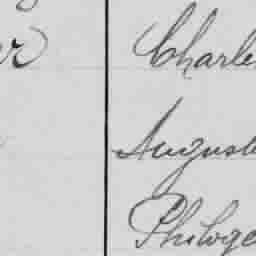 er Charle
August
Philoge